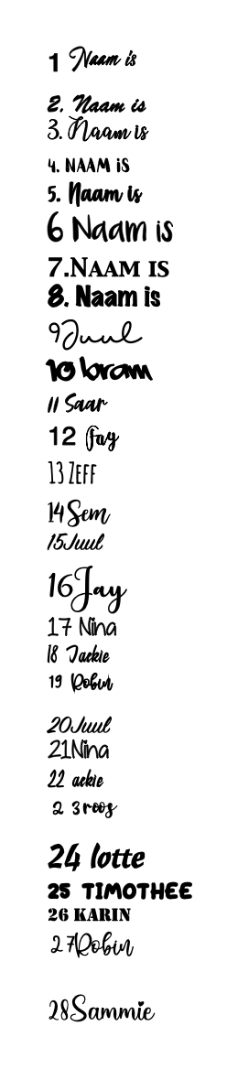 1 Naam is
2. Naam is
3. Naam is
4. NAAM iS
5. Naam is
6 Naam is
7.NAAM IS
8. Naam is
9Juul
10 bram
11 Saar
12 fay
13 ZEFF
14Sem
15Juul
16Jay
17 Nina
18 Jackie
19 Robin
20Juul
21Nina
22 ackie
2 3roos
24 lotte
25 TIMOTHEE
26 KARIN
2 7Robin
28Sammie